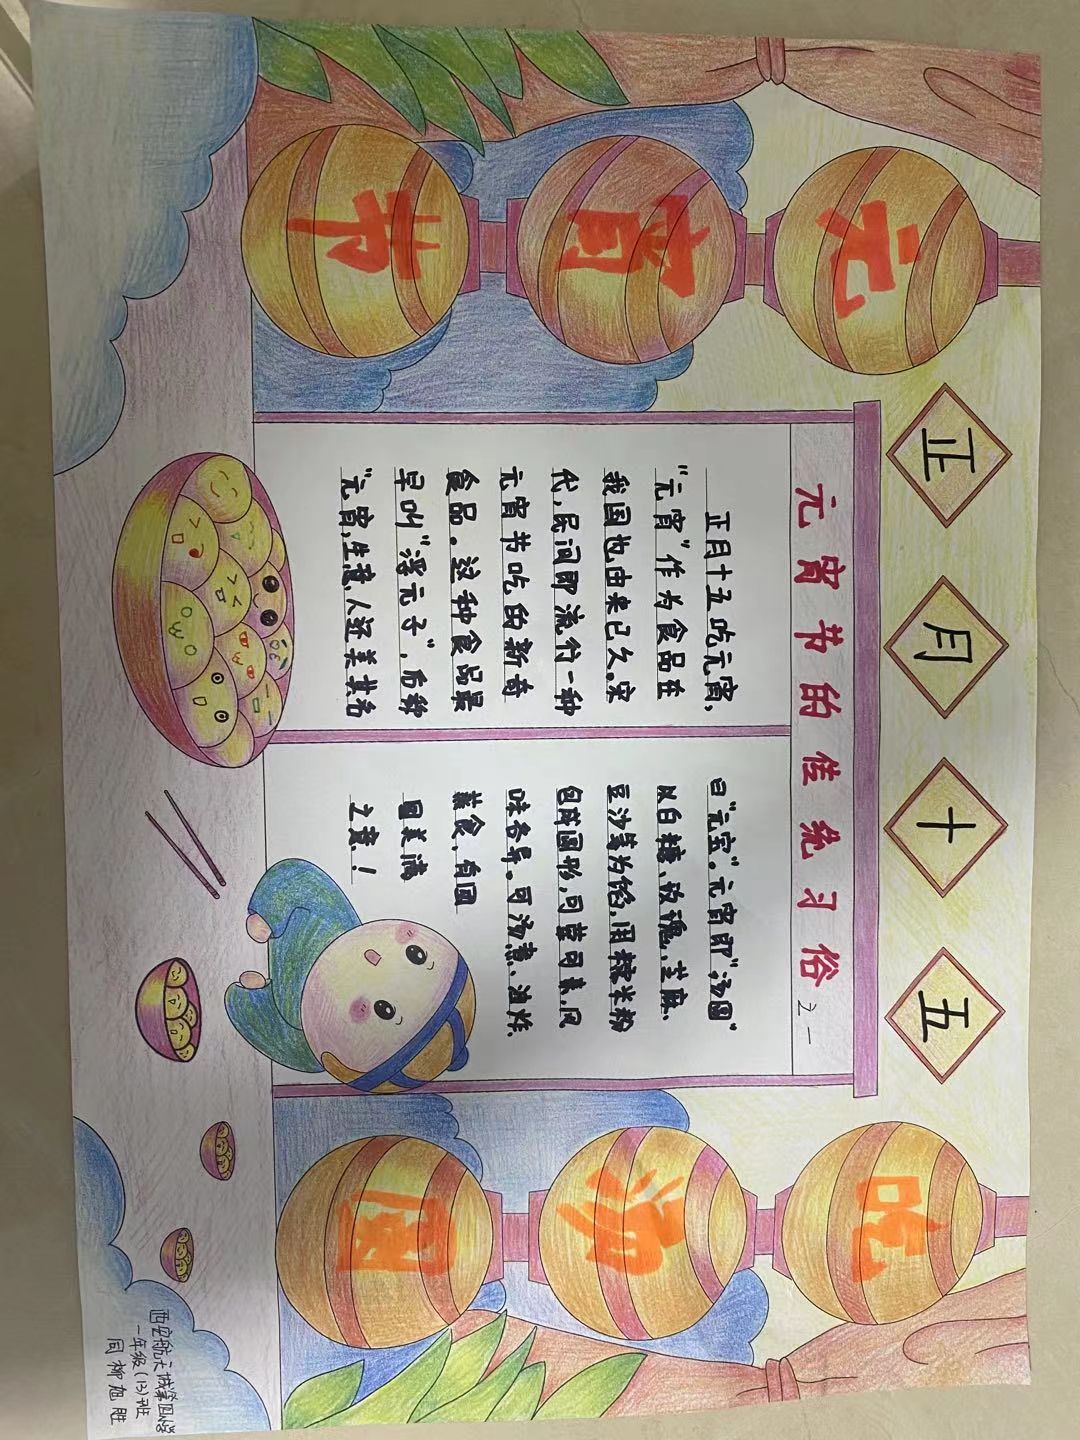 正月十五
元宵节
吃汤圆
元宵节的传统习俗之一
正月十五吃元宵，
“元宵”作为食品在
我国也由来已久。宋
代，民间即流行一种
元宵节吃的新奇
食品。这种食品最
早叫“浮元子”，后称
“元宵，生意人还美其名
曰“元宝”。元宵即“汤圆”
以白糖、玫瑰、芝麻、
豆沙等为馅，用糯米粉
包成圆形，可荤可素，风
味各异。可汤煮、油炸、
蒸食，有团
圆美满
之意！
西安航天城第四小学
一年级(13)班
同柳旭胜